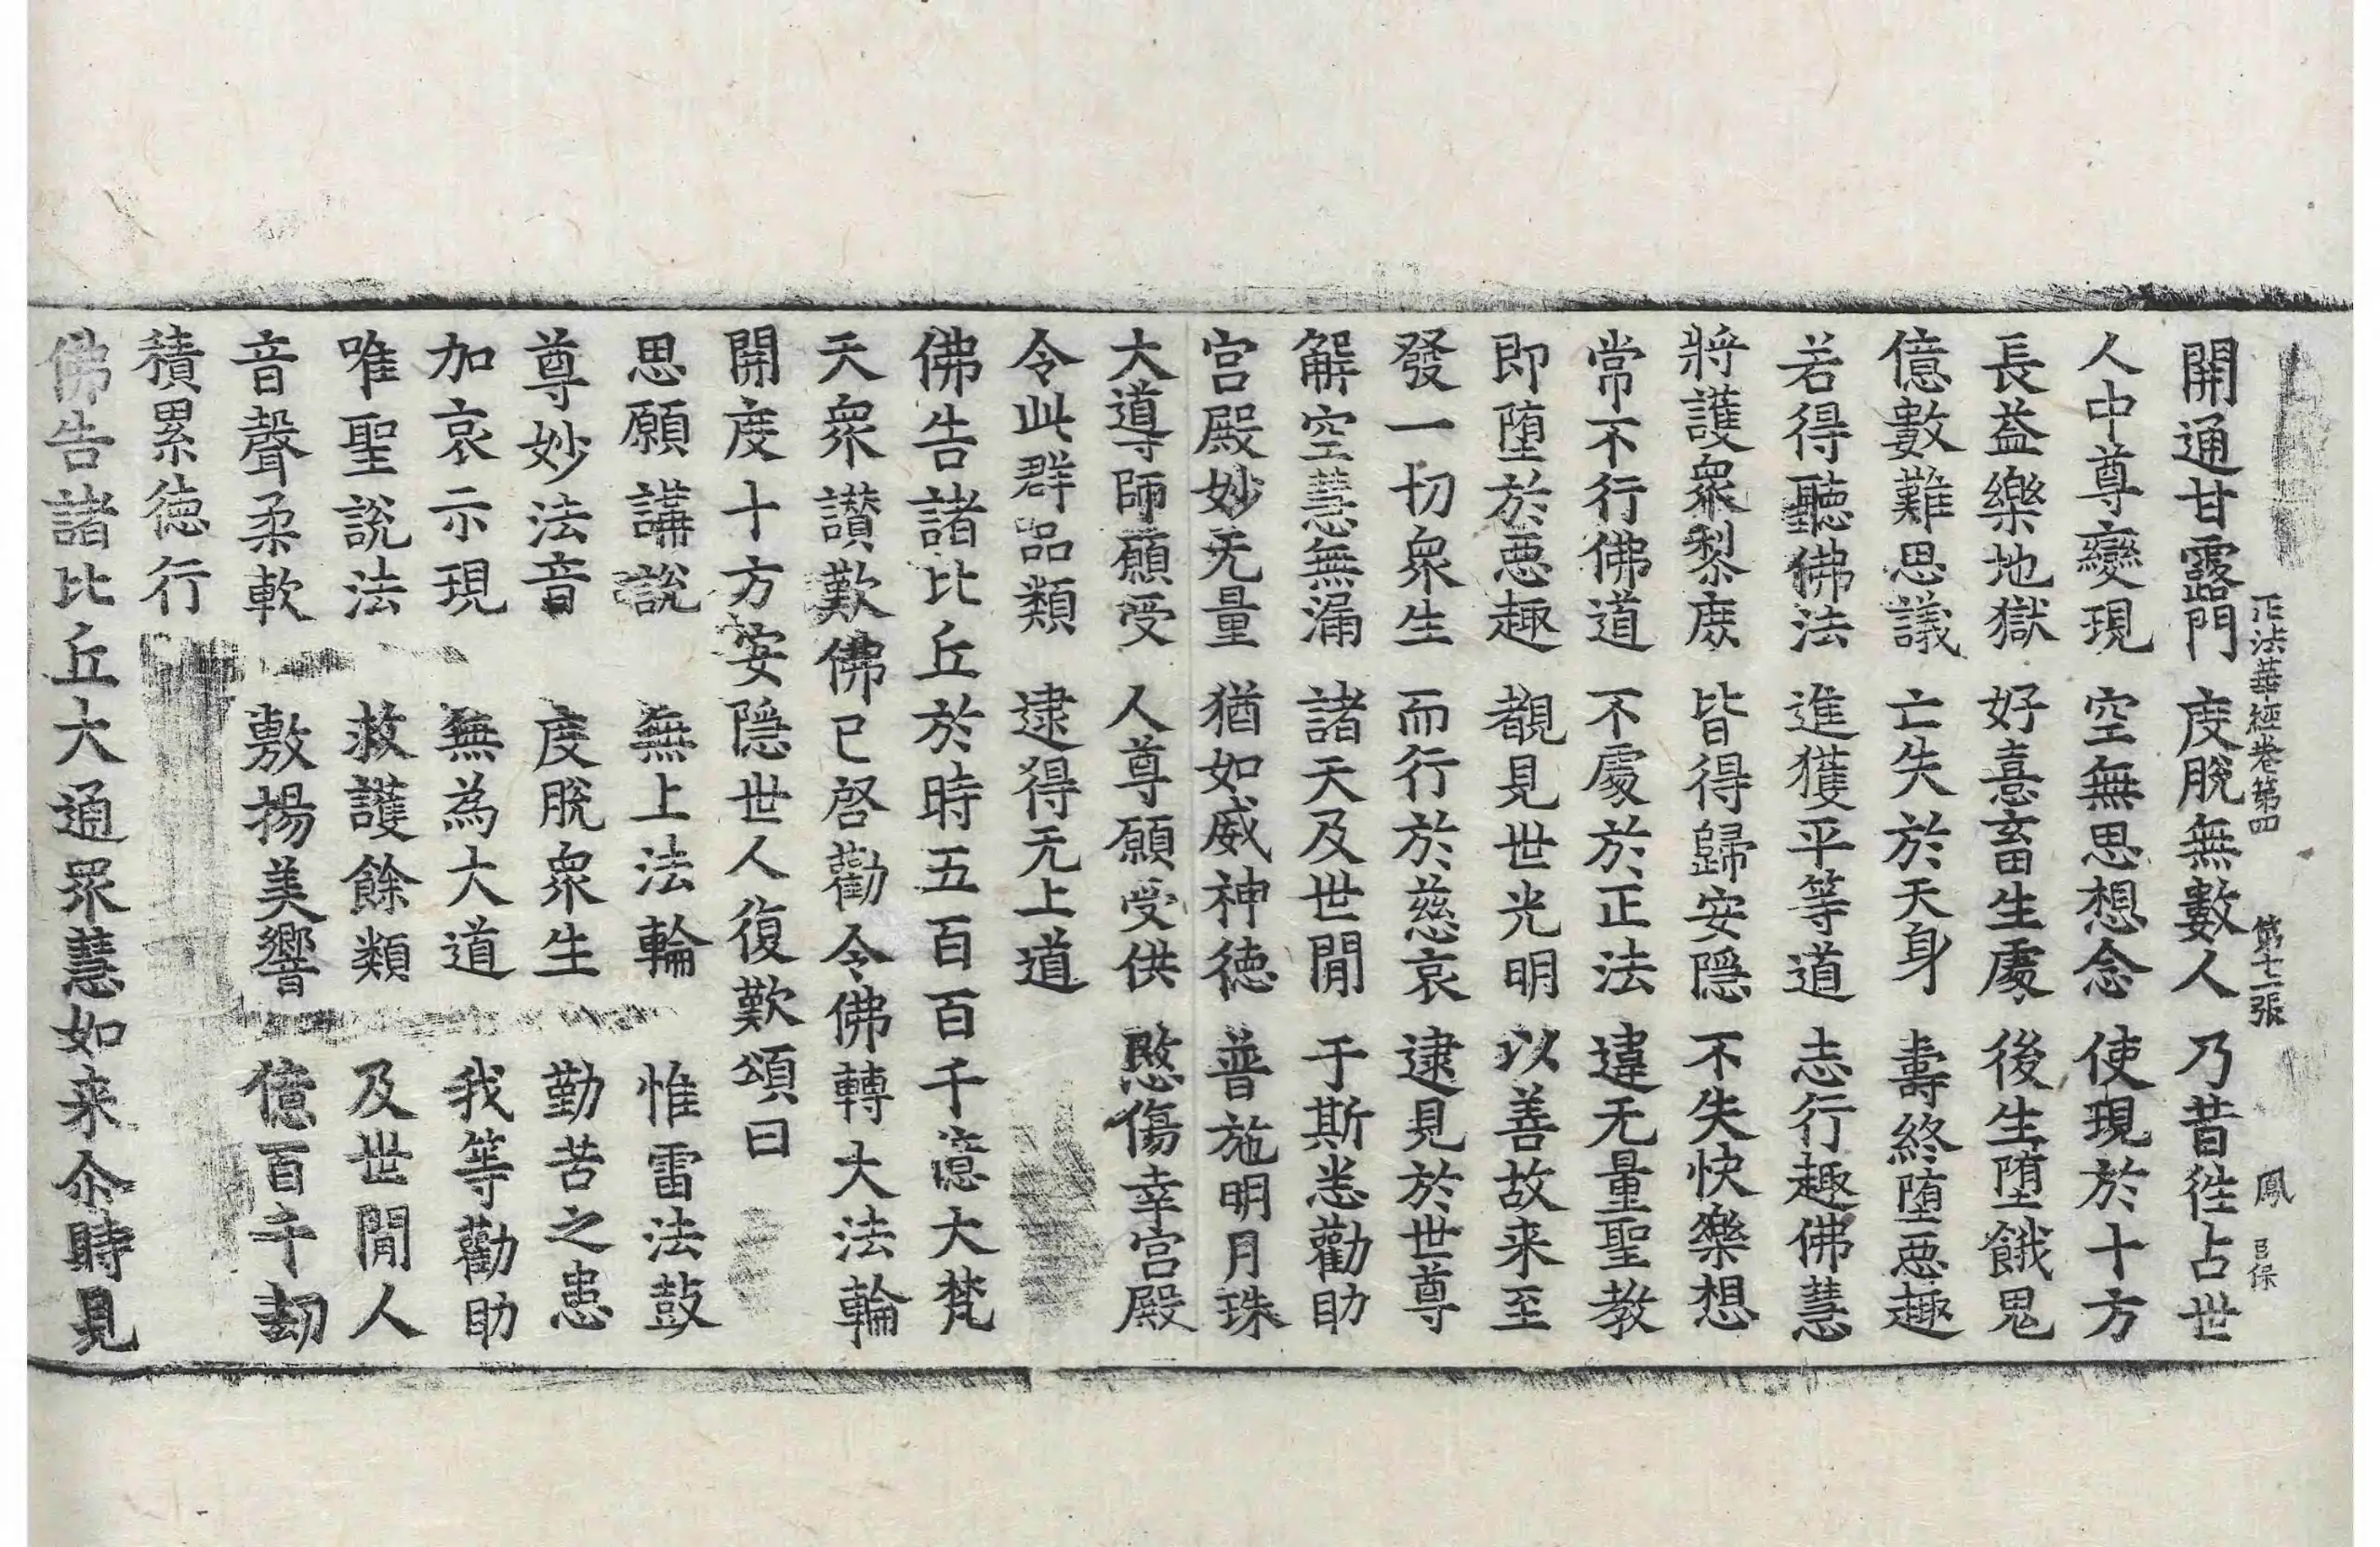 正法華經卷第四 第十二張 鳳
開通甘露門 度脫無數人 乃昔徃占世
人中尊變現 空無思想念 使現於十方
長益樂地獄 好憙畜生處 後生墮餓鬼
億數難思議 亡失於天身 壽終墮惡趣
若得聽佛法 進獲平等道 志行趣佛慧
將護衆黎庶 皆得歸安隱 不失快樂想
常不行佛道 不處於正法 違无量聖教
即墮於惡趣 覩見世光明 以善故来至
發一切衆生 而行於慈哀 逮見於世尊
解空慧無漏 諸天及世閒 于斯悉勸助
宮殿妙无量 猶如威神德 普施明月珠
大導師願受 人尊願受供 愍傷幸宮殿
令此群品類 逮得无上道
佛告諸比丘於時五百百千億大梵
天衆讃歎佛已啓勸令佛轉大法輪
開度十方安隱世人復歎頌曰
思願講說 無上法輪 惟雷法鼓
尊妙法音 度脫衆生 勤苦之患
加哀示現 無為大道 我等勸助
唯聖說法 救護餘類 及世閒人
音聲柔軟 敷揚美響 億百千劫
積累德行
佛告諸比丘大通衆慧如来尒時見